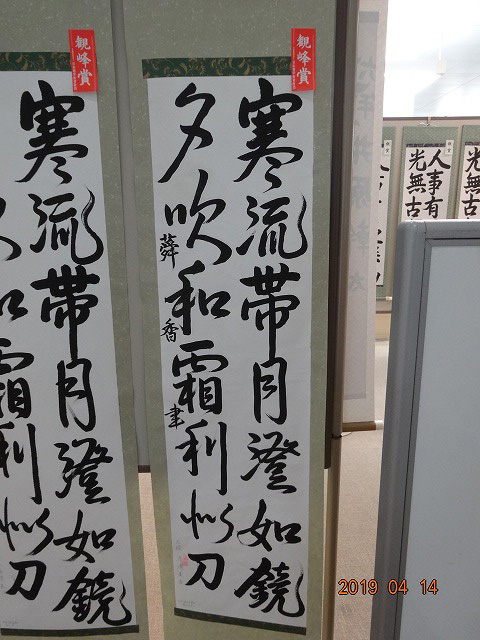 観峰賞
寒流帯月澄如鏡
夕吹和霜利似刀
蕣香書
観峰賞
寒流帯月澄如鏡
人事有
光無古
2019 04 14